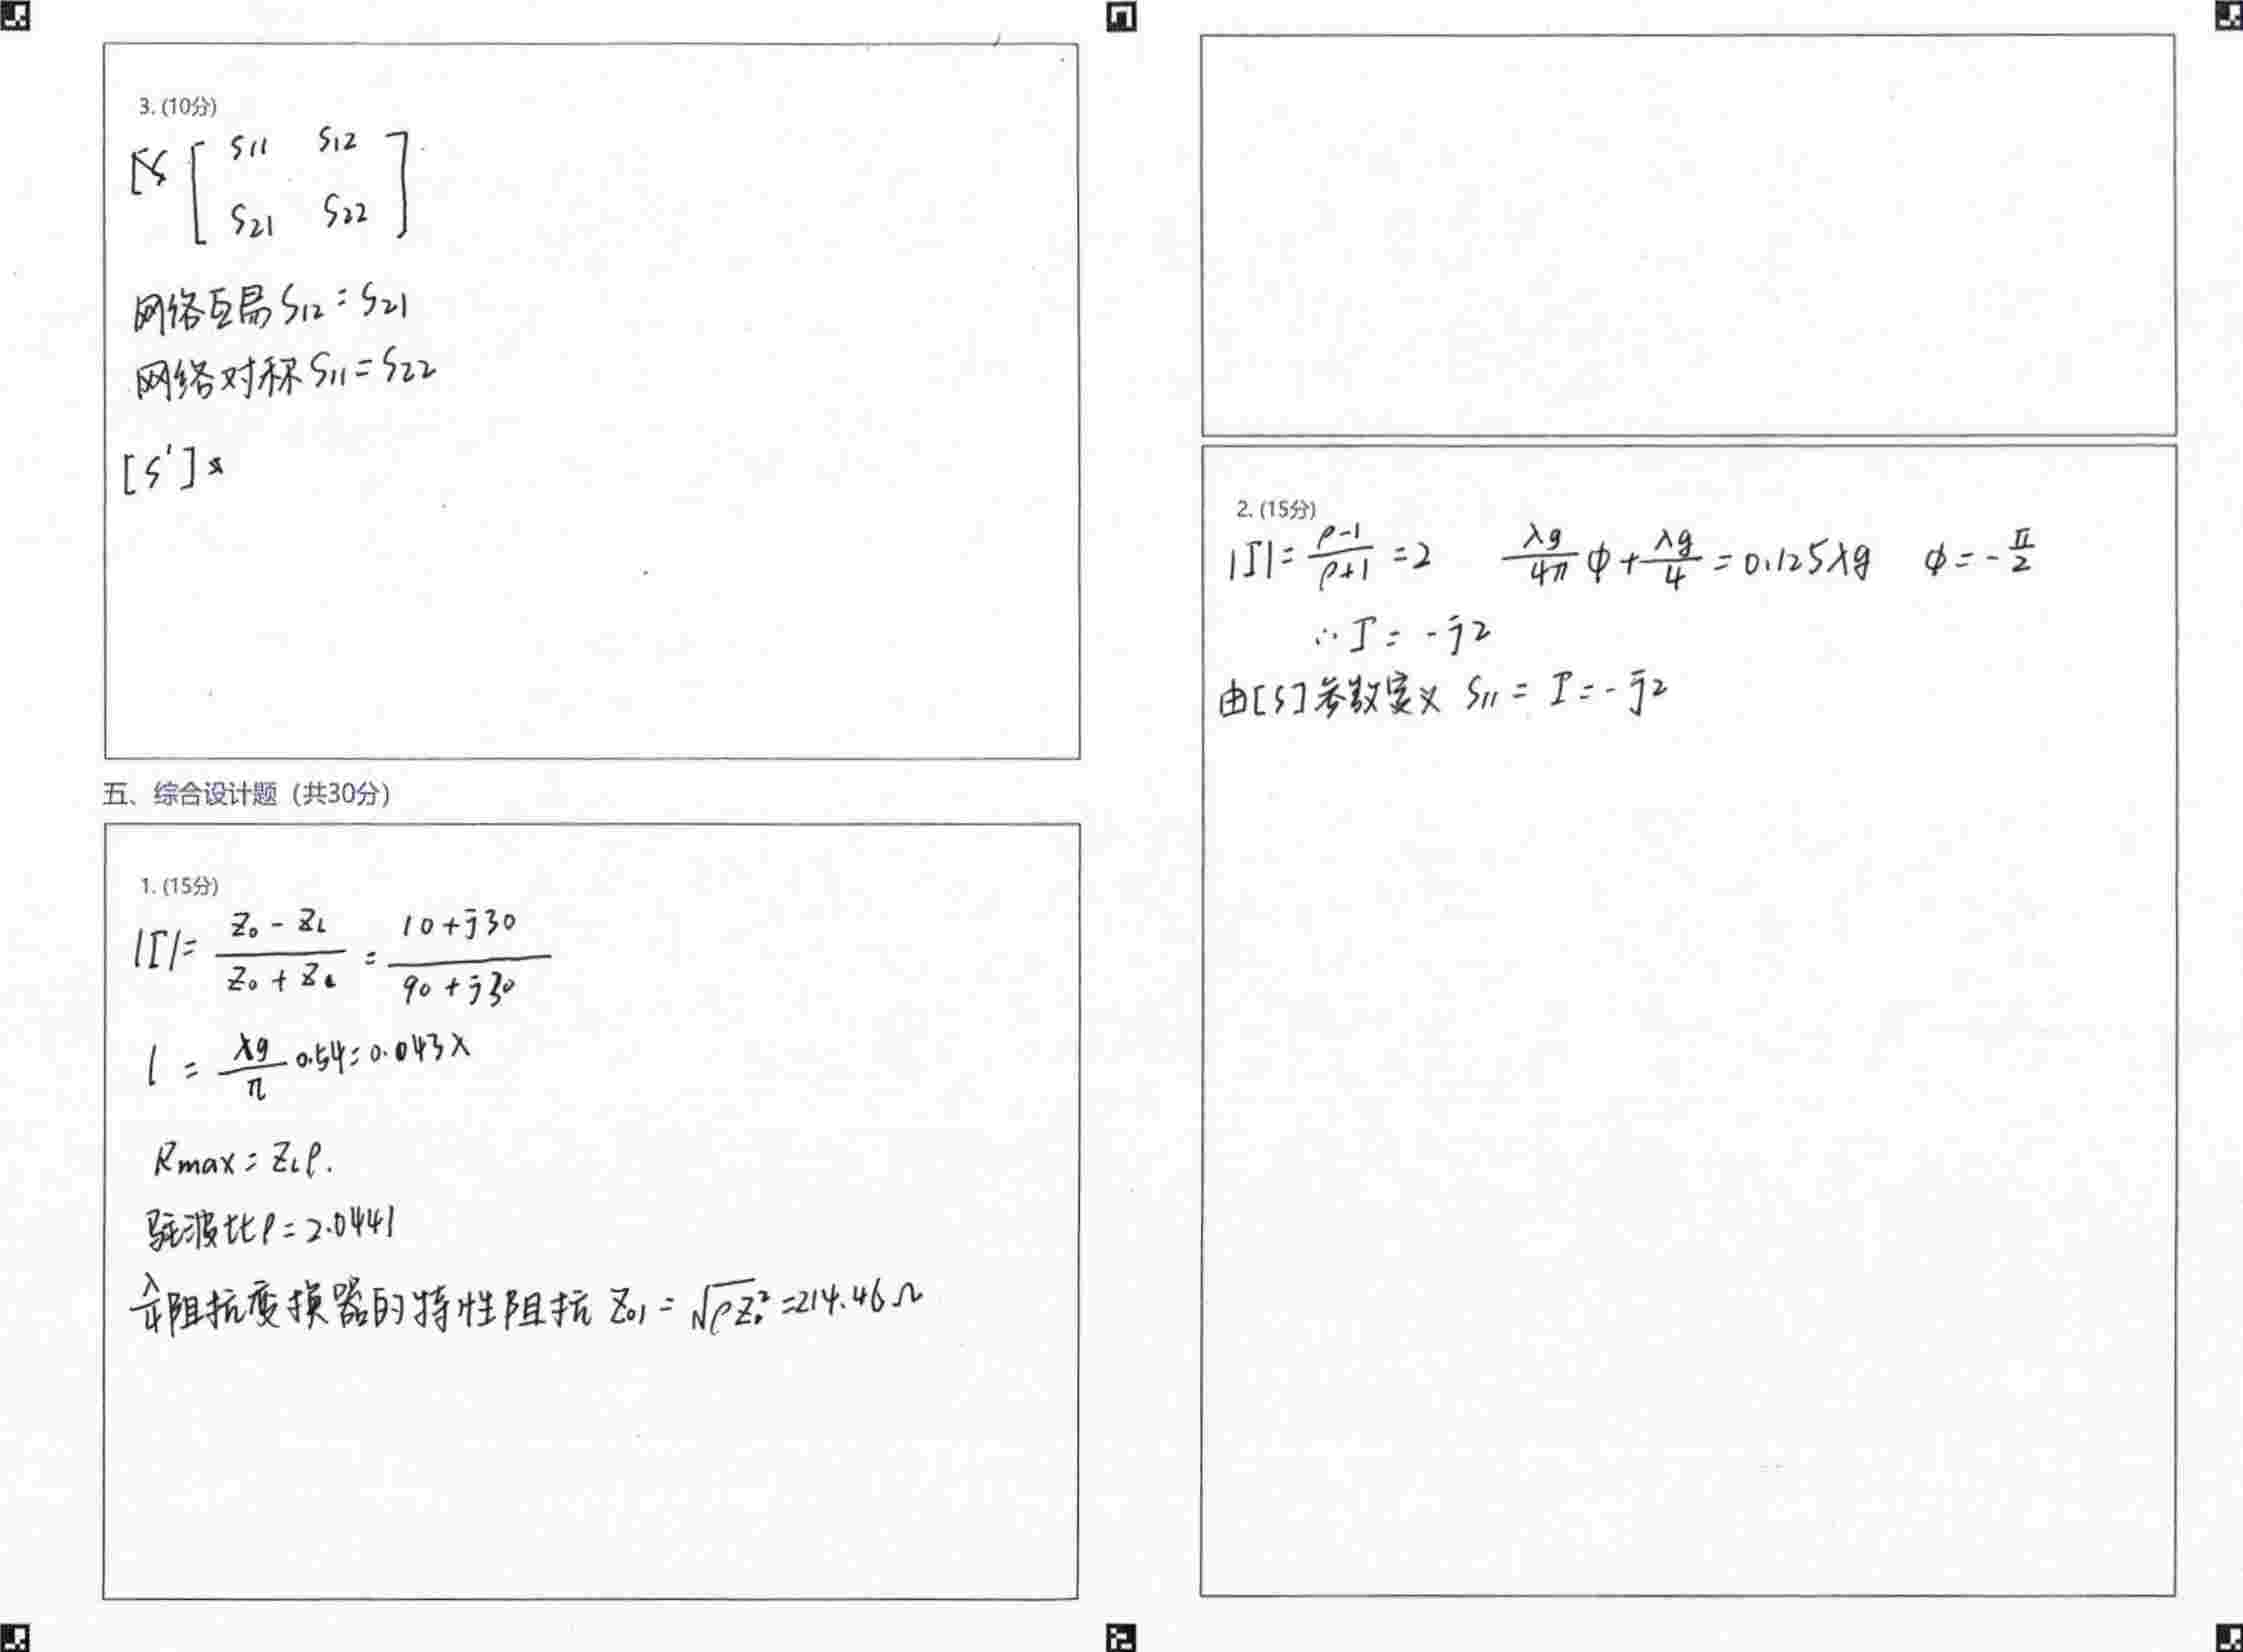 3. (10分)
[S [ S11 S12
S21 S22 ]
网络互易 S12 = S21
网络对称 S11 = S22
[S']
五、综合设计题（共30分）
1. (15分)
|Γ| = (Z0 - ZL)/(Z0 + ZL) = (10 + j30)/(90 + j30)
l = λg/π 0.54 = 0.043λ
Rmax = ZLρ.
驻波比ρ = 2.0441
λ/4阻抗变换器的特性阻抗 Z01 = √(ρZ0²) = 214.46Ω
2. (15分)
|Γ| = (ρ-1)/(ρ+1) = 2 λg/4π φ + λg/4 = 0.125λg φ = -π/2
∴ Γ = -j2
由[S]参数定义 S11 = Γ = -j2